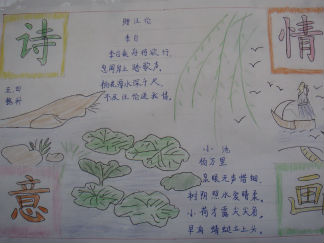 诗
情
赠汪伦
李白
李白乘舟将欲行,
忽闻岸上踏歌声。
桃花潭水深千尺,
不及汪伦送我情。
小池
杨万里
泉眼无声惜细流,
树阴照水爱晴柔。
小荷才露尖尖角,
早有蜻蜓立上头。
意
画